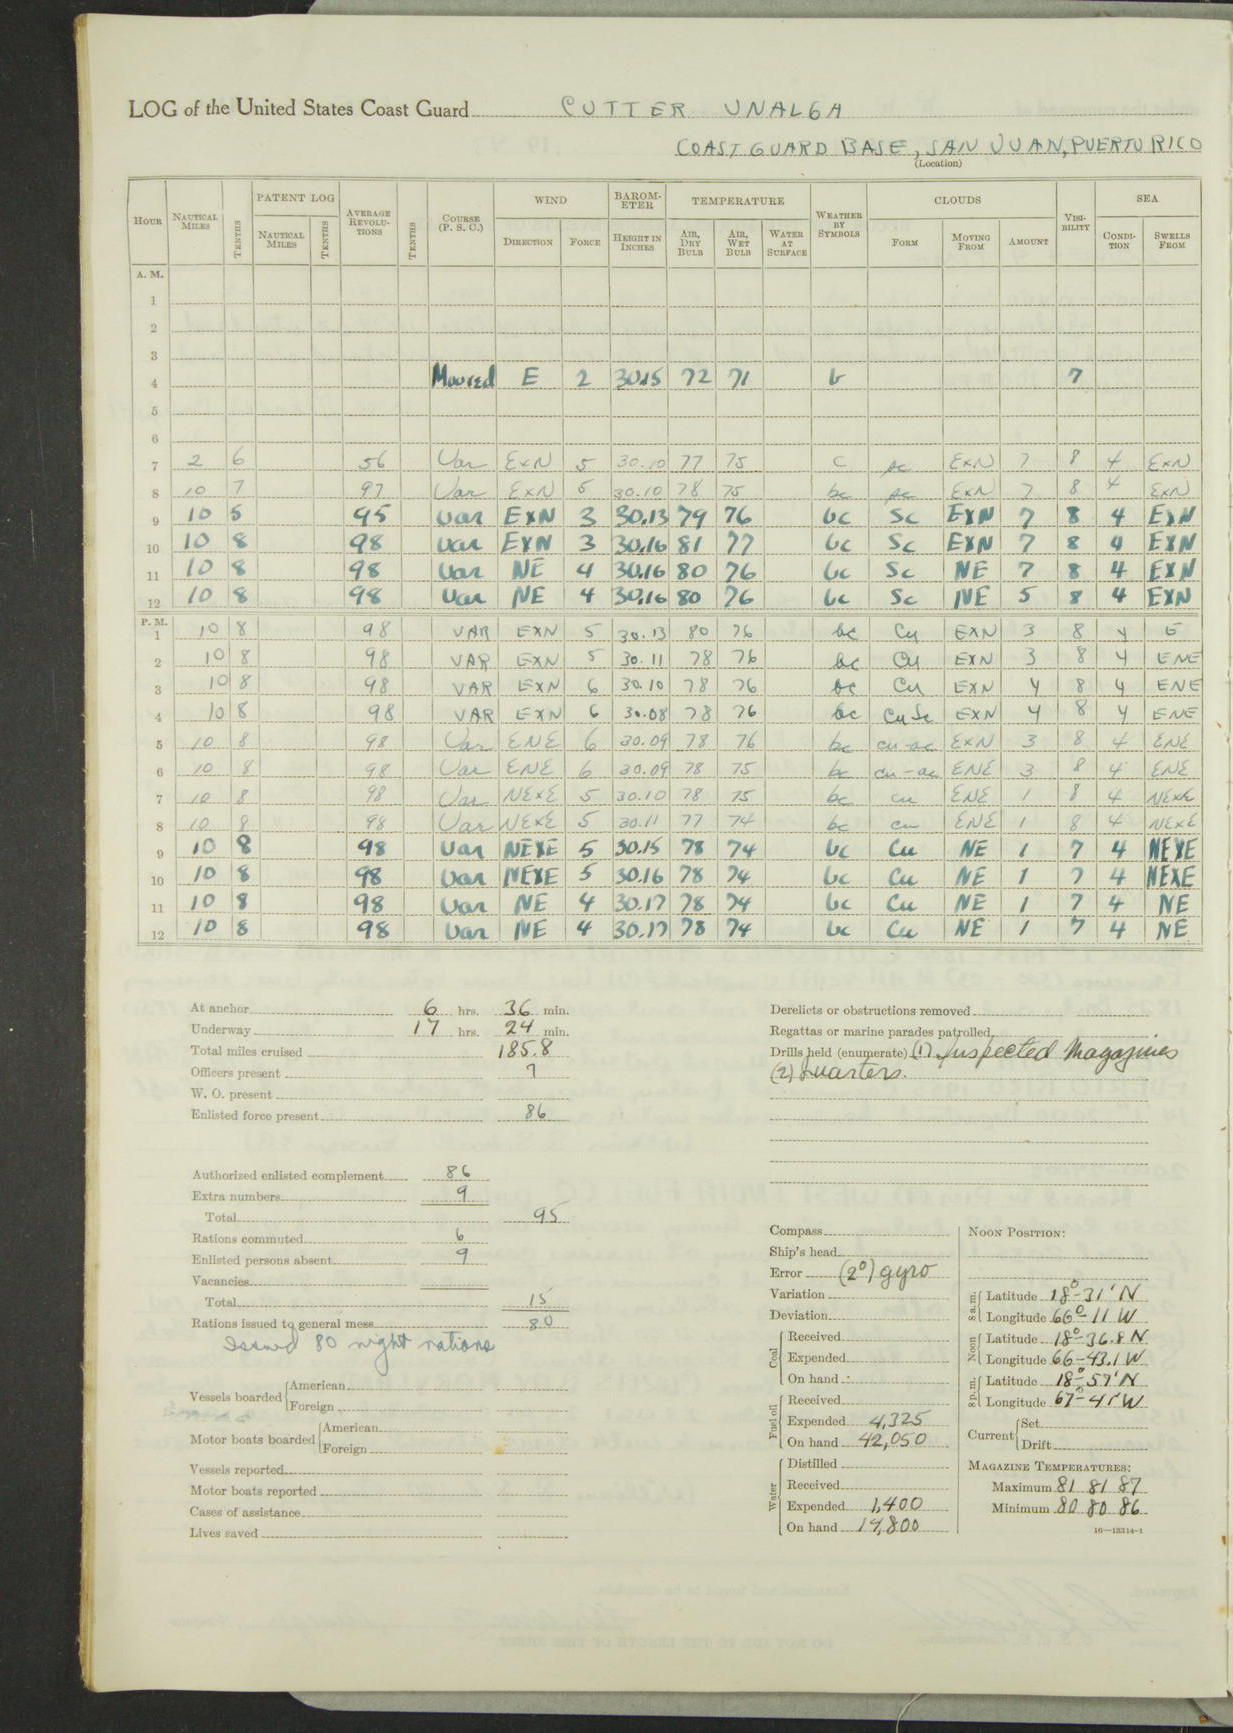 LOG of the United States Coast Guard CUTTER UNALGA
COAST GUARD BASE, SAN JUAN, PUERTO RICO
(Location)
HOUR NAUTICAL MILES TENTHS PATENT LOG NAUTICAL MILES TENTHS AVERAGE REVOLUTIONS TENTHS COURSE (P. S. C.) WIND DIRECTION FORCE BAROMETER HEIGHT IN INCHES TEMPERATURE AIR, DRY BULB AIR, WET BULB WATER AT SURFACE WEATHER BY SYMBOLS CLOUDS FORM MOVING FROM AMOUNT VISIBILITY SEA CONDITION SWELLS FROM
A. M.
1
2
3
4 Moored E 2 30.15 72 71 b 7
5
6
7 2 6 56 Var ExN 5 30.10 77 75 c sc ExN 7 8 4 ExN
8 10 7 97 Var ExN 5 30.10 78 75 bc sc ExN 7 8 4 ExN
9 10 5 95 Var EXN 3 30.13 79 76 bc Sc EXN 7 8 4 EXN
10 10 8 98 Var EXN 3 30.16 81 77 bc Sc EXN 7 8 4 EXN
11 10 8 98 Var NE 4 30.16 80 76 bc Sc NE 7 8 4 EXN
12 10 8 98 Var NE 4 30.16 80 76 bc Sc NE 5 8 4 EXN
P. M.
1 10 8 98 VAR EXN 5 30.13 80 76 bc Cu EXN 3 8 4 E
2 10 8 98 VAR EXN 5 30.11 78 76 bc Cu EXN 3 8 4 ENE
3 10 8 98 VAR EXN 6 30.10 78 76 bc Cu EXN 4 8 4 ENE
4 10 8 98 VAR EXN 6 30.08 78 76 bc Cu Sc EXN 4 8 4 ENE
5 10 8 98 Var ENE 6 30.09 78 76 bc cu-ac ExN 3 8 4 ENE
6 10 8 98 Var ENE 6 30.09 78 75 bc cu-ac ENE 3 8 4 ENE
7 10 8 98 Var NExE 5 30.10 78 75 bc cu ENE 1 8 4 NExE
8 10 8 98 Var NExE 5 30.11 77 74 bc cu ENE 1 8 4 NExE
9 10 8 98 Var NEXE 5 30.15 78 74 bc Cu NE 1 7 4 NEXE
10 10 8 98 Var NEXE 5 30.16 78 74 bc Cu NE 1 7 4 NEXE
11 10 8 98 Var NE 4 30.17 78 74 bc Cu NE 1 7 4 NE
12 10 8 98 Var NE 4 30.17 78 74 bc Cu NE 1 7 4 NE
At anchor 6 hrs. 36 min.
Underway 17 hrs. 24 min.
Total miles cruised 185.8
Officers present 7
W. O. present
Enlisted force present 86
Authorized enlisted complement 86
Extra numbers 9
Total 95
Rations commuted 6
Enlisted persons absent 9
Vacancies
Total 15
Rations issued to general mess 80
Issued 80 night rations
Vessels boarded American
Foreign
Motor boats boarded American
Foreign
Vessels reported
Motor boats reported
Cases of assistance
Lives saved
Derelicts or obstructions removed
Regattas or marine parades patrolled
Drills held (enumerate) (1) Inspected Magazines
(2) Quarters.
Compass
Ship's head
Error (2°) gyro
Variation
Deviation
Coal Received
Expended
On hand
Fuel oil Received
Expended 4,325
On hand 42,050
Water Distilled
Received
Expended 1,400
On hand 19,800
NOON POSITION:
8 a.m. Latitude 18°-31' N
Longitude 66°-11 W
Noon Latitude 18°-36.8 N
Longitude 66-43.1 W
8 p.m. Latitude 18°-57' N
Longitude 67°-41' W
Current Set
Drift
MAGAZINE TEMPERATURES:
Maximum 81 81 87
Minimum 80 80 86
16—13314-1